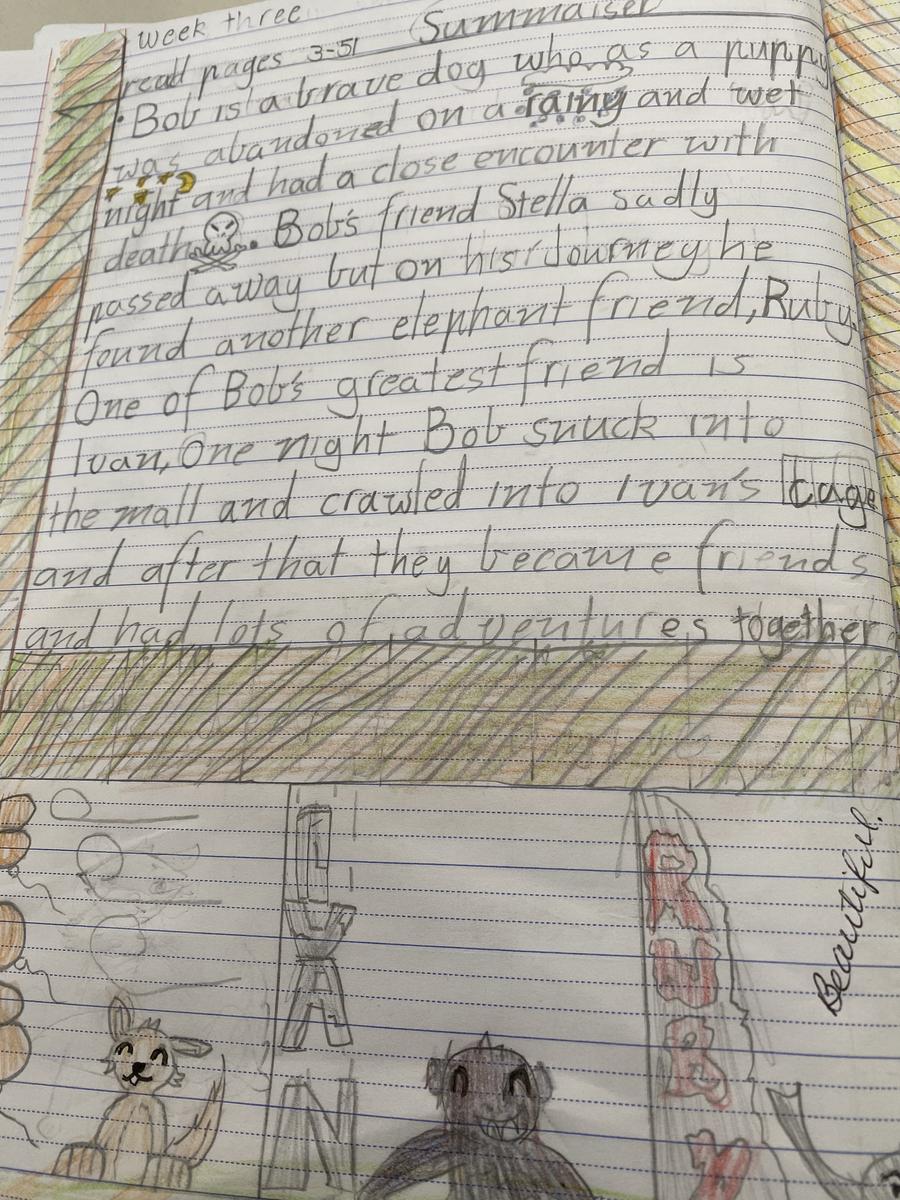 week three
Summariser
read pages 3-51
• Bob is a brave dog who as a puppy
was abandoned on a rainy and wet
night and had a close encounter with
death. Bob's friend Stella sadly
passed away but on his Journey he
found another elephant friend, Ruby.
One of Bob's greatest friend is
Ivan, One night Bob snuck into
the mall and crawled into Ivan's cage
and after that they became friends
and had lots of adventures together
IVAN
RUBY
Beautiful.